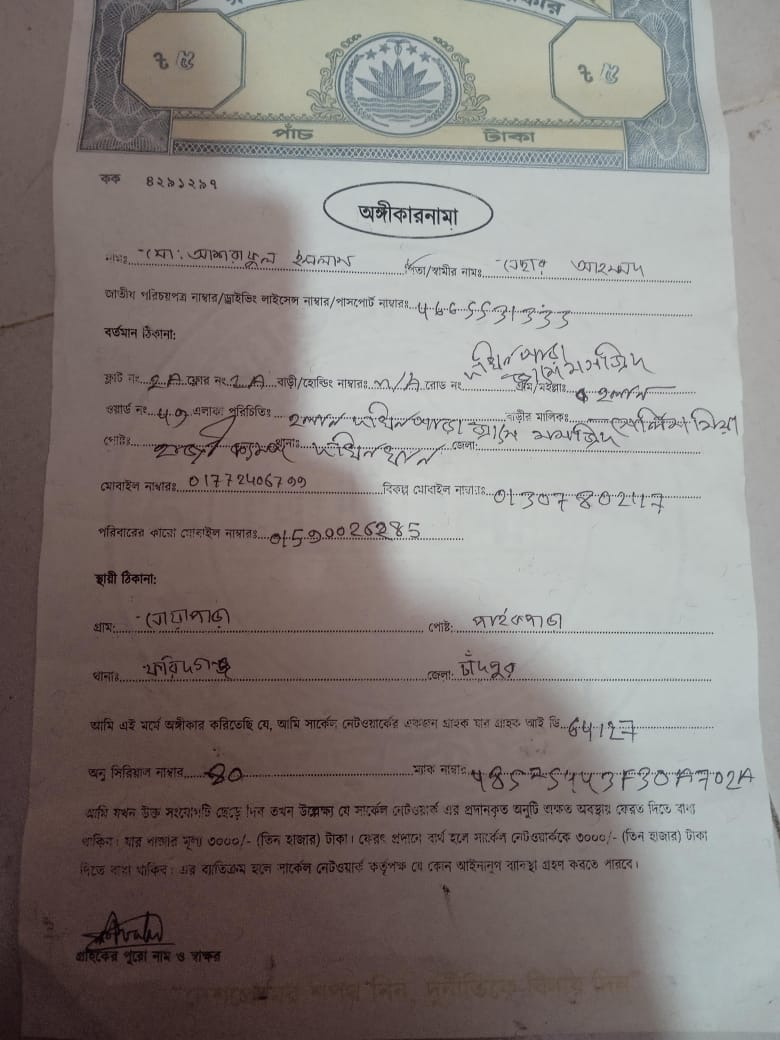 ৳ ৫
৳ ৫
পাঁচ টাকা
কক ৪২৯১২৯৭
অঙ্গীকারনামা
নামঃ মোঃ আশরাফুল ইসলাম পিতা/স্বামীর নামঃ আহম্মদ
জাতীয় পরিচয়পত্র নাম্বার/ড্রাইভিং লাইসেন্স নাম্বার/পাসপোর্ট নাম্বারঃ
বর্তমান ঠিকানা:
ফ্লাট নং 2A ফ্লোর নং 2A বাড়ী/হোল্ডিং নাম্বারঃ N/A রোড নং জামে মসজিদ গ্রাম/মহল্লাঃ হলান
ওয়ার্ড নং 49 এলাকা পরিচিতিঃ হলান জামে মসজিদ বাড়ীর মালিকঃ মিয়া
পোষ্টঃ থানাঃ দক্ষিনখান জেলা:
মোবাইল নাম্বারঃ 01772406799 বিকল্প মোবাইল নাম্বারঃ 01307802117
পরিবারের কারো মোবাইল নাম্বারঃ 01590026285
স্থায়ী ঠিকানা:
গ্রাম: পোষ্ট: পাইকপাড়া
থানাঃ ফরিদগঞ্জ জেলা: চাঁদপুর
আমি এই মর্মে অঙ্গীকার করিতেছি যে, আমি সার্কেল নেটওয়ার্কের একজন গ্রাহক যার গ্রাহক আই ডি 64127
অনু সিরিয়াল নাম্বার 80 ম্যাক নাম্বারঃ
আমি যখন উক্ত সংযোগটি ছেড়ে দিব তখন উল্লেখ্য যে সার্কেল নেটওয়ার্ক এর প্রদানকৃত অনুটি অক্ষত অবস্থায় ফেরত দিতে বাধ্য
থাকিব। যার বাজার মূল্য ৩০০০/- (তিন হাজার) টাকা। ফেরৎ প্রদানে ব্যর্থ হলে সার্কেল নেটওয়ার্ককে ৩০০০/- (তিন হাজার) টাকা
দিতে বাধ্য থাকিব। এর ব্যতিক্রম হলে সার্কেল নেটওয়ার্ক কর্তৃপক্ষ যে কোন আইনানুগ ব্যবস্থা গ্রহণ করতে পারবে।
গ্রাহকের পুরো নাম ও স্বাক্ষর
শপথ নিন, দুর্নীতিকে বিদায় দিন"